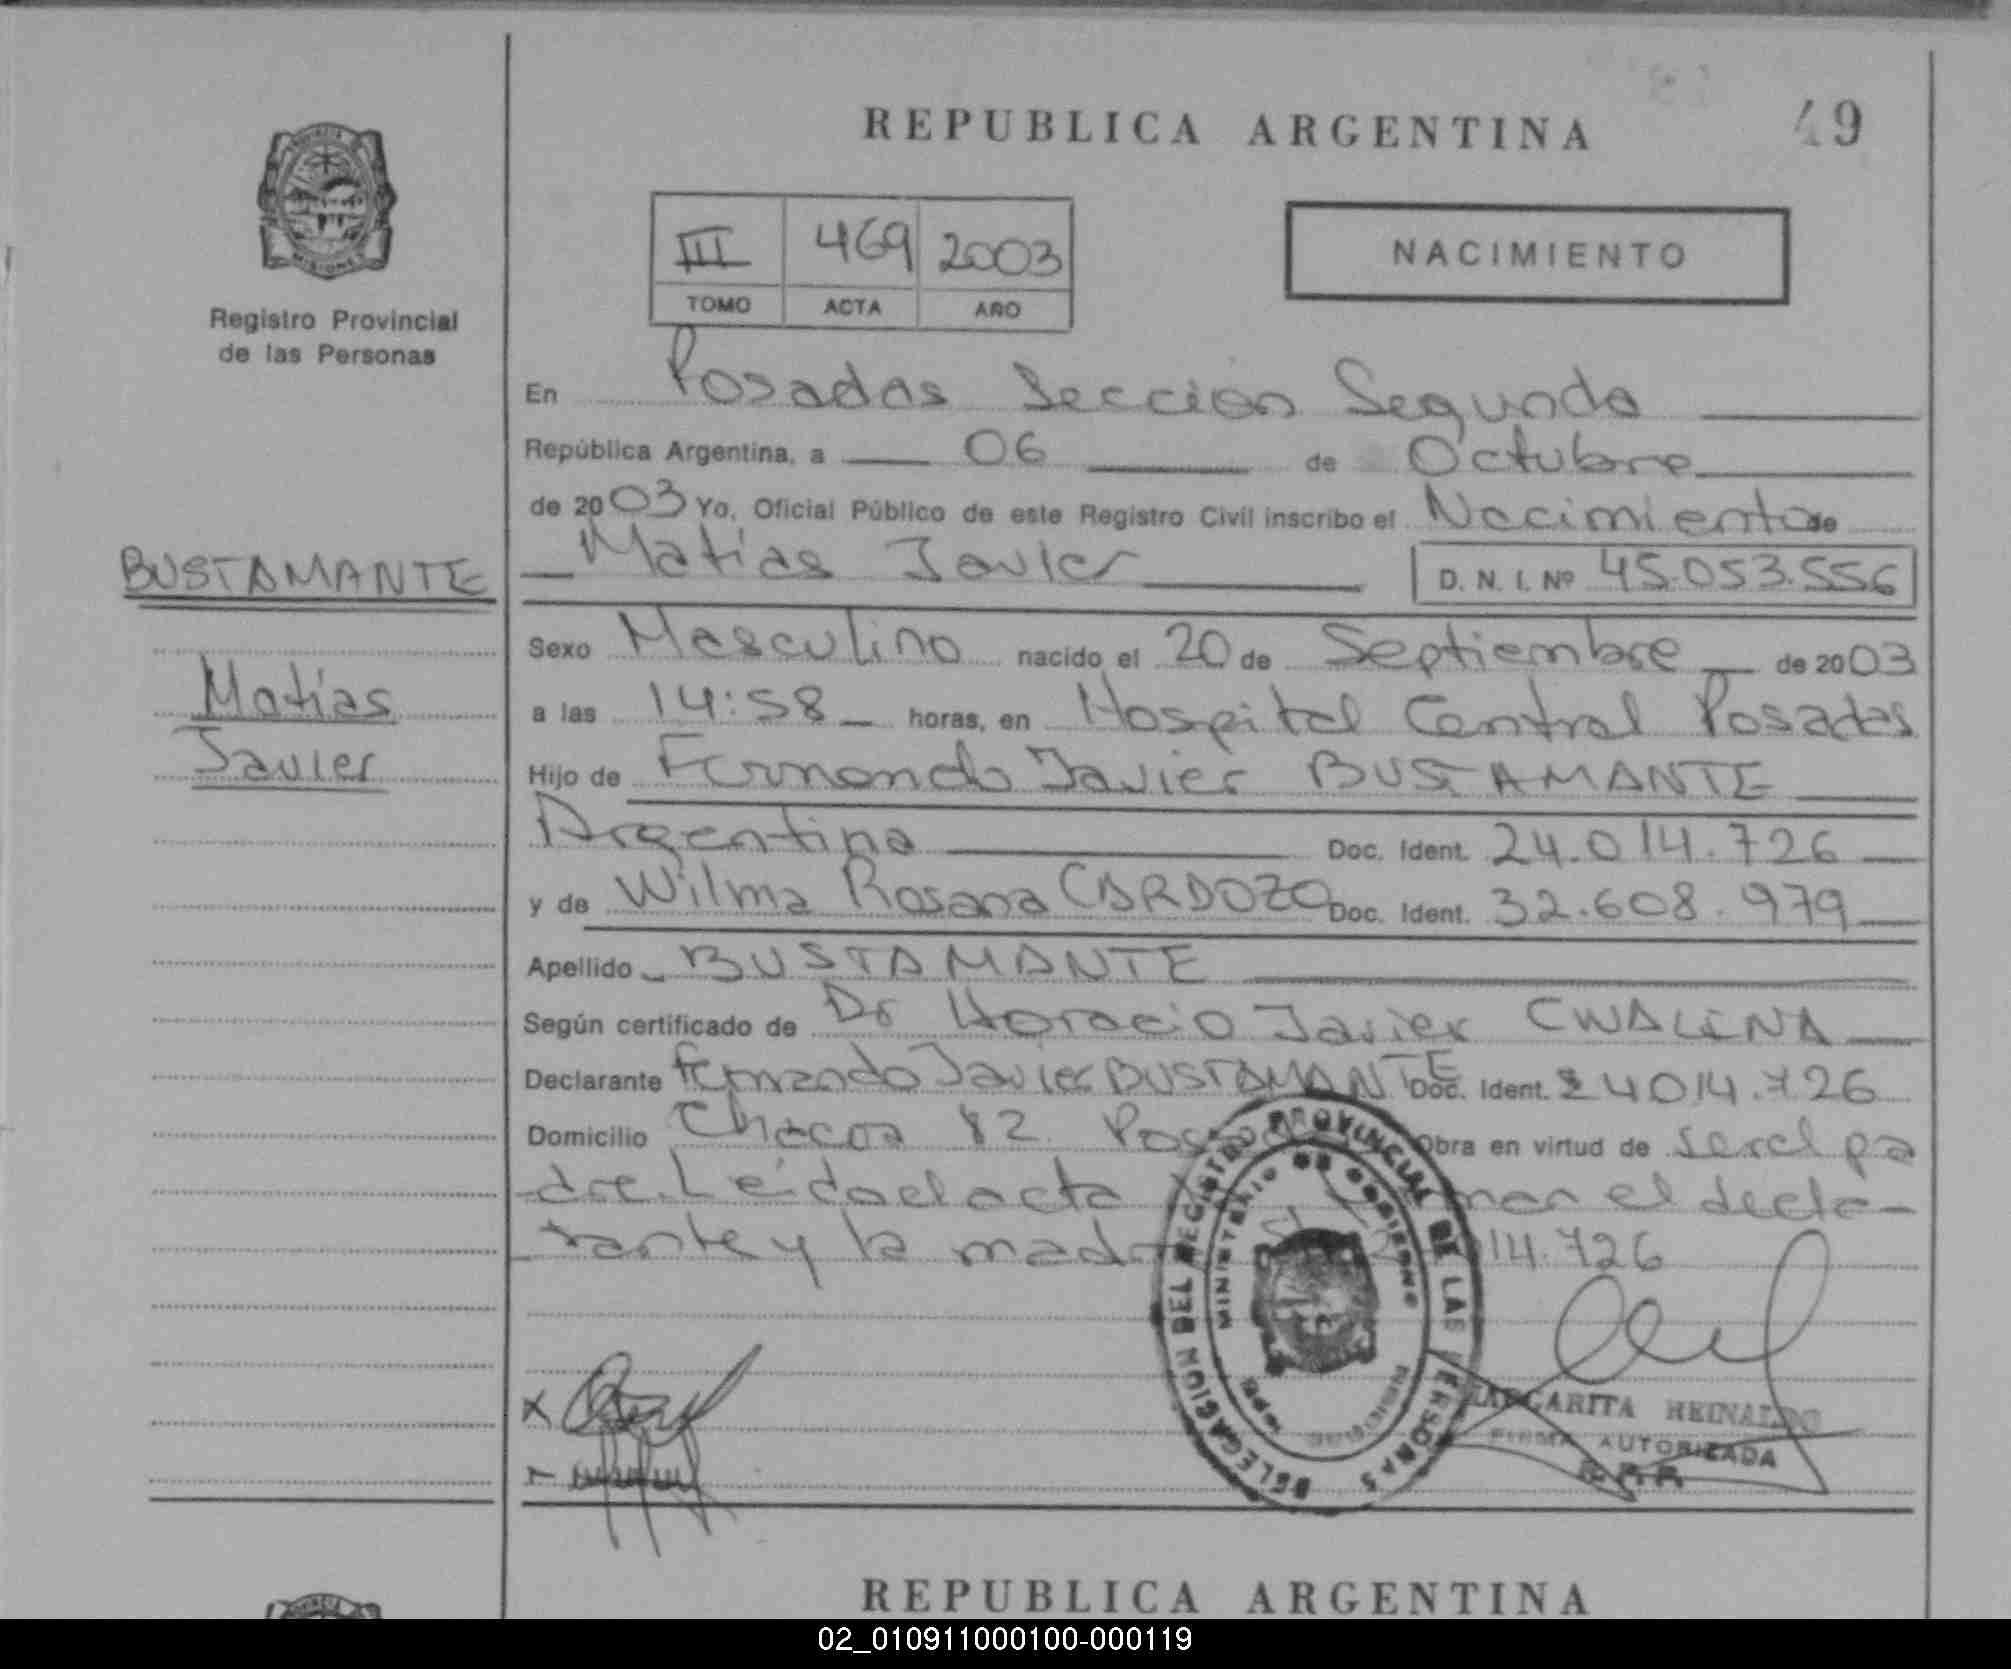 REPUBLICA ARGENTINA
49
PROVINCIA
MISIONES
Registro Provincial
de las Personas
III 469 2003
TOMO ACTA AÑO
NACIMIENTO
En Posadas Sección Segunda
República Argentina, a 06 de Octubre
de 2003 Yo, Oficial Público de este Registro Civil inscribo el Nacimiento de
Matías Javier D. N. I. Nº 45.053.556
BUSTAMANTE
Matías
Javier
Sexo Masculino nacido el 20 de Septiembre de 2003
a las 14:58 horas, en Hospital Central Posadas
Hijo de Fernando Javier BUSTAMANTE
Argentina Doc. Ident. 24.014.726
y de Wilma Rosana CARDOZO Doc. Ident. 32.608.979
Apellido BUSTAMANTE
Según certificado de Dr Horacio Javier CWALINA
Declarante Fernando Javier BUSTAMANTE Doc. Ident. 24014.726
Domicilio Chacra 82 Posadas Obra en virtud de ser el pa
dre. Leída el acta el decla-
rante y la madre 14.726
DELEGACION DEL REGISTRO PROVINCIAL DE LAS PERSONAS
MINISTERIO DE GOBIERNO
MARGARITA REINALDO
FIRMA AUTORIZADA
R.P.P.
REPUBLICA ARGENTINA
02_010911000100-000119